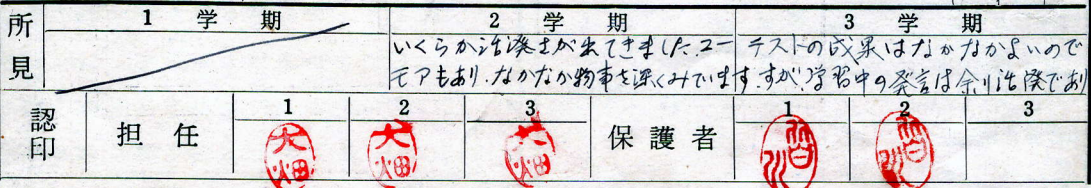 所見
1 学 期
2 学 期
3 学 期
いくらか活溌さが出てきました。ユー
モアもあり、なかなか物事を深くみています。
テストの成果はなかなかよいので
すが、学習中の発言は余り活溌であり
認印
担 任
1
2
3
大畑
大畑
大畑
保 護 者
1
2
3